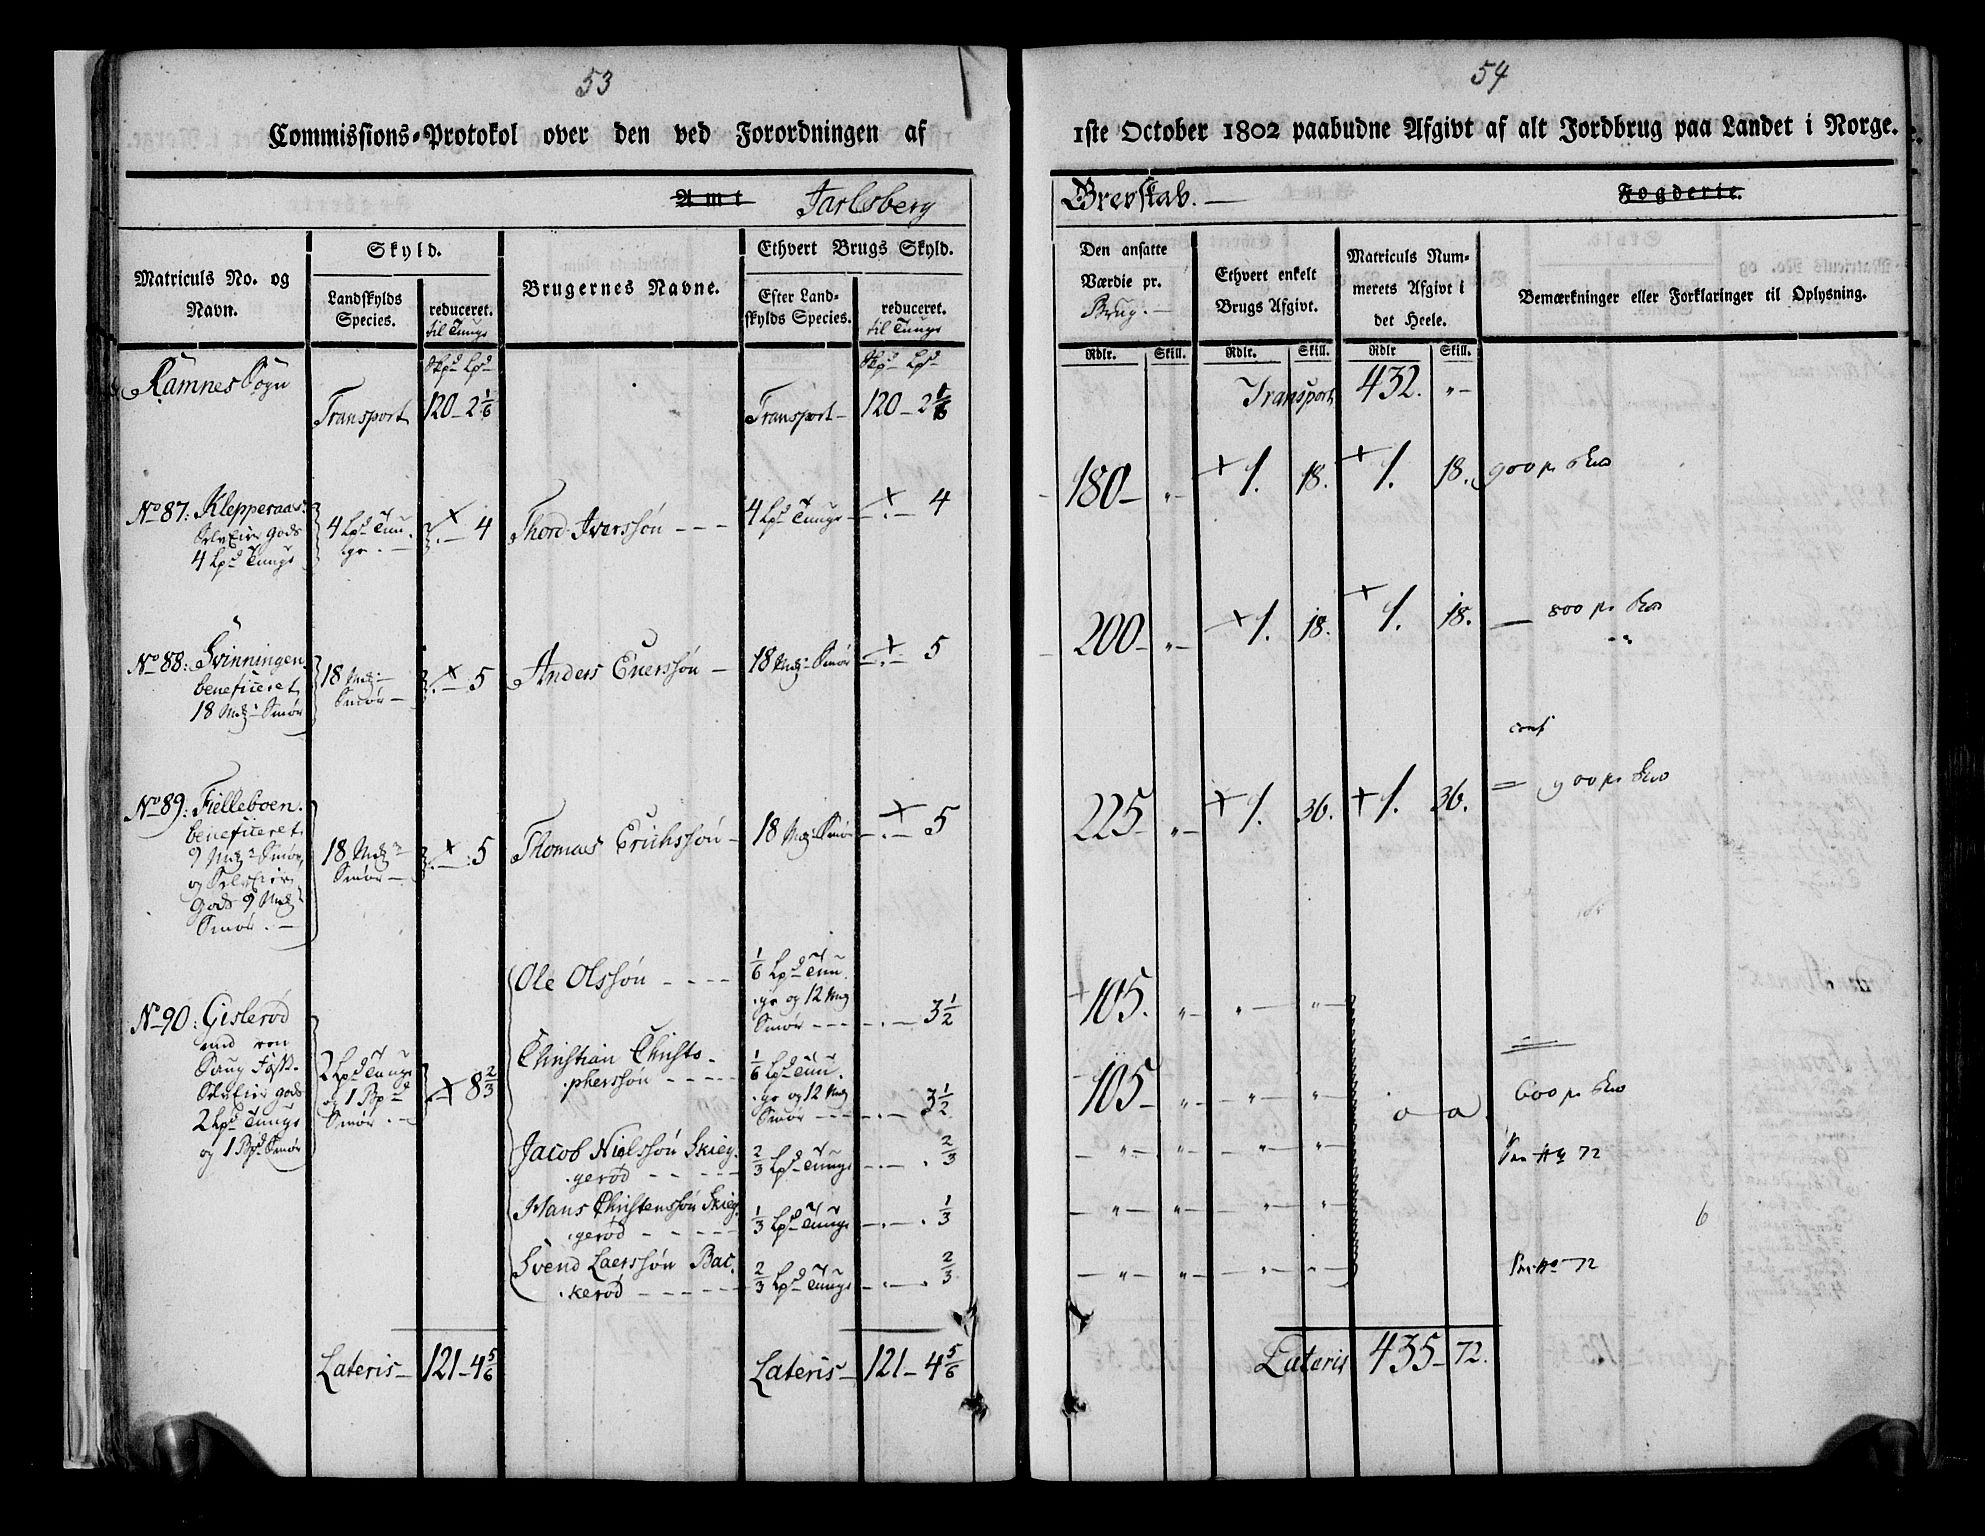 53
Commissions-Protokol over den ved Forordningen af
Amt Jarlsberg
Matriculs No. og Navn.
Skyld.
Landskylds Species.
reduceret.
til Tunge
Brugernes Navne.
Ethvert Brugs Skyld.
Efter Landskylds Species.
reduceret.
til Tunge
Ramnes Sogn
Skpd Lpd
Skpd Lpd
Transport 120-2 1/6 Transport 120-2 1/6
No 87: Klepperaas 4 Lpd Tunge 4 Thord Iverssøn 4 Lpd Tunge 4
SelvEier Gods
4 Lpd Tunge
No 88: Svinningen 18 Mk Smør 5 Anders Enerssøn 18 Mk Smør 5
beneficeret
18 Mk Smør
No 89: Fielleboen 18 Mk Smør 5 Thomas Erichssøn 18 Mk Smør 5
beneficeret
9 Mk Smør
og SelvEier
Gods 9 Mk
Smør.
No 90: Gislerød 2 Lpd Tunge og 1 Bpd Smør 8 2/3
SelvEier Gods
2 Lpd Tunge
og 1 Bpd Smør
Ole Olssøn 1/6 Lpd Tunge og 12 Mk Smør 3 1/2
Christian Christophersøn 1/6 Lpd Tunge og 12 Mk Smør 3 1/2
Jacob Nielssøn Skieggerød 2/3 Lpd Tunge 2/3
Hans Christenssøn Skieggerød 1/3 Lpd Tunge 1/3
Svend Laerssøn Backerød 2/3 Lpd Tunge 2/3
Lateris 121-4 5/6 Lateris 121-4 5/6
54
1ste October 1802 paabudne Afgivt af alt Jordbrug paa Landet i Norge.
Grevskab. Fogderie.
Den ansatte Værdie pr.
Brug.
Ethvert enkelt Brugs Afgivt.
Matriculs Nummerets Afgivt i det Heele.
Bemærkninger eller Forklaringer til Oplysning.
Rdlr. Skill. Rdlr. Skill. Rdlr Skill.
Transport 432. "
180 " 1. 18. 1. 18. 900
200 " 1. 18. 1. 18. 800
225 " 1. 36. 1. 36. 900
105. " " "
105 " " " 600
" " " " 72
" " " " 6
" " " " 72
Lateris 435 72.